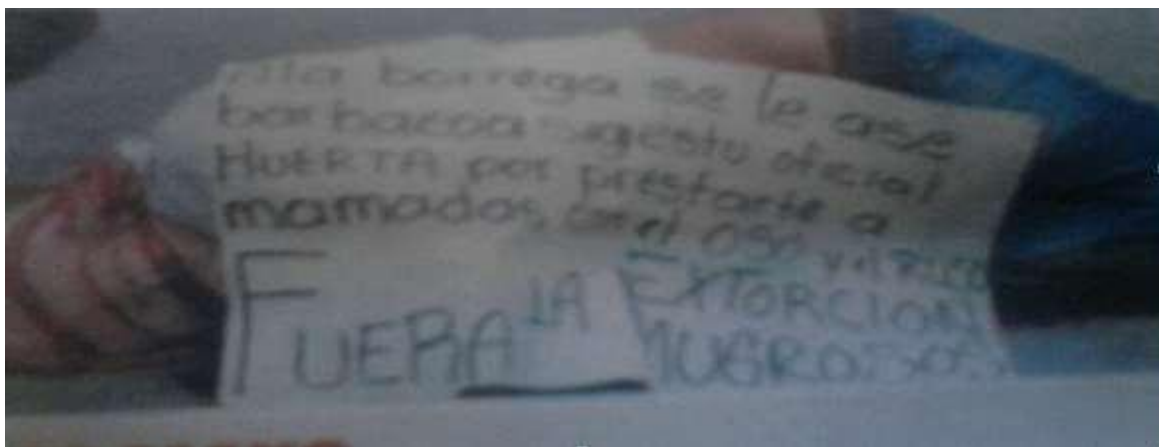 la borrega se le ase
barbacoa sigesto oficial
HUERTA por prestarte a
mamados con el oso
FUERA LA EXTORCION
MUGROSOS